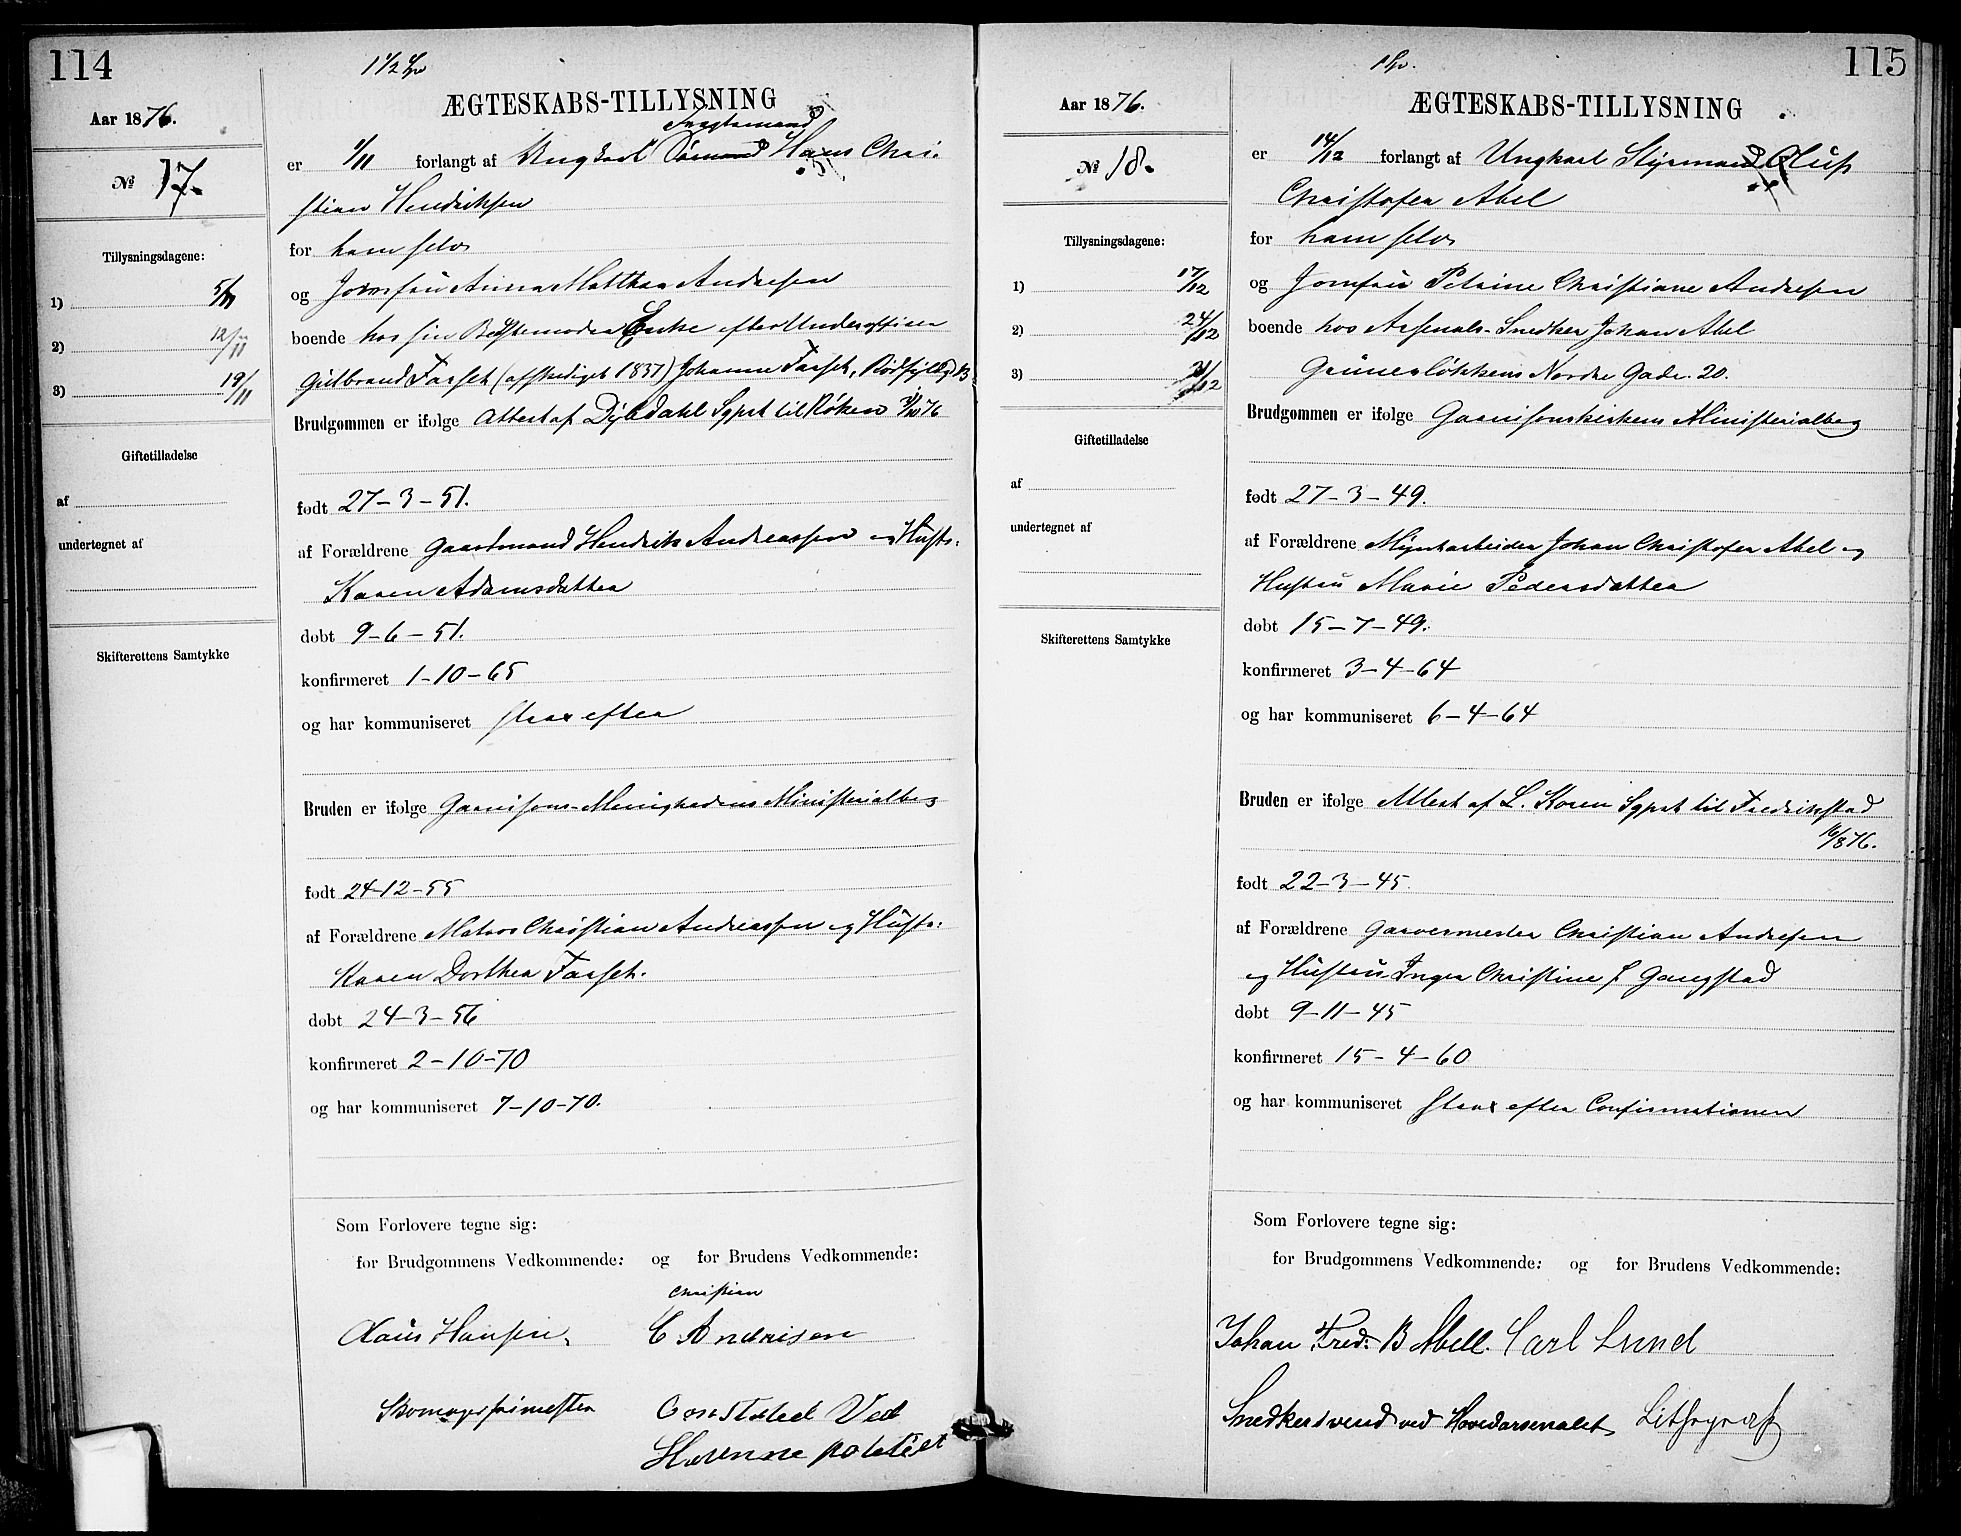 114
1 1/2 Sp
Aar 1876.
№ 17.
Tillysningsdagene:
1) 5/11
2) 12/11
3) 19/11
Giftetilladelse
af
undertegnet af
Skifterettens Samtykke
ÆGTESKABS-TILLYSNING
Fragtemand
er 1/11 forlangt af Ungkarl Sømand Hans Chri-
stian Hendriksen
for ham selv
og Jomfru Anna Mathea Andresen
boende hos sin Bestemoder Enke efter Underofficer
Gulbrand Faaset (afskediget 1837) Johanne Faaset, Rødfyldgd 13
Brudgommen er ifølge Attest af Dybdahl Sgprst til Røken 31/10 76
født 27-3-51.
af Forældrene Gaardmand Hendrik Andreassen og Hustr.
Karen Adamsdatter
døbt 9-6-51.
konfirmeret 1-10-65
og har kommuniseret strax efter
Bruden er ifølge Garnisons-Menighedens Ministerialbog
født 24-12-55
af Forældrene Matros Christian Andreassen og Hustr:
Karen Dorthea Faaset.
døbt 24-3-56
konfirmeret 2-10-70
og har kommuniseret 7-10-70.
Som Forlovere tegne sig:
for Brudgommens Vedkommende: og for Brudens Vedkommende:
Christian
Claus Hansen C Andrisen
Skomagersvimester Constabel Ved
Havnne politiet
115
1 Sp.
Aar 1876.
№ 18.
Tillysningsdagene:
1) 17/12
2) 24/12
3) 31/12
Giftetilladelse
af
undertegnet af
Skifterettens Samtykke
ÆGTESKABS-TILLYSNING
er 14/12 forlangt af Ungkarl Styrmand Oluf
Christofer Abel
for ham selv
og Jomfru Petrine Christiane Andresen
boende hos Arsenals-Snedker Johan Abel
Grünerløkkens Nordre Gade. 20.
Brudgommen er ifølge Garnisonskirkens Ministerialbog
født 27-3-49.
af Forældrene Myntarbeider Johan Christofer Abel og
Hustru Marie Pedersdatter
døbt 15-7-49.
konfirmeret 3-4-64
og har kommuniseret 6-4-64
Bruden er ifølge Attest af L. Koren Sgprst til Fredrikstad
16/8 76.
født 22-3-45
af Forældrene Garvermester Christian Andresen
og Hustru Inger Christine f Gangstad
døbt 9-11-45
konfirmeret 15-4-60
og har kommuniseret strax efter Confirmationen
Som Forlovere tegne sig:
for Brudgommens Vedkommende: og for Brudens Vedkommende:
Johan Fred: B Abell. Carl Lund
Snedkersvend ved Hovedarsenalet Lithograf